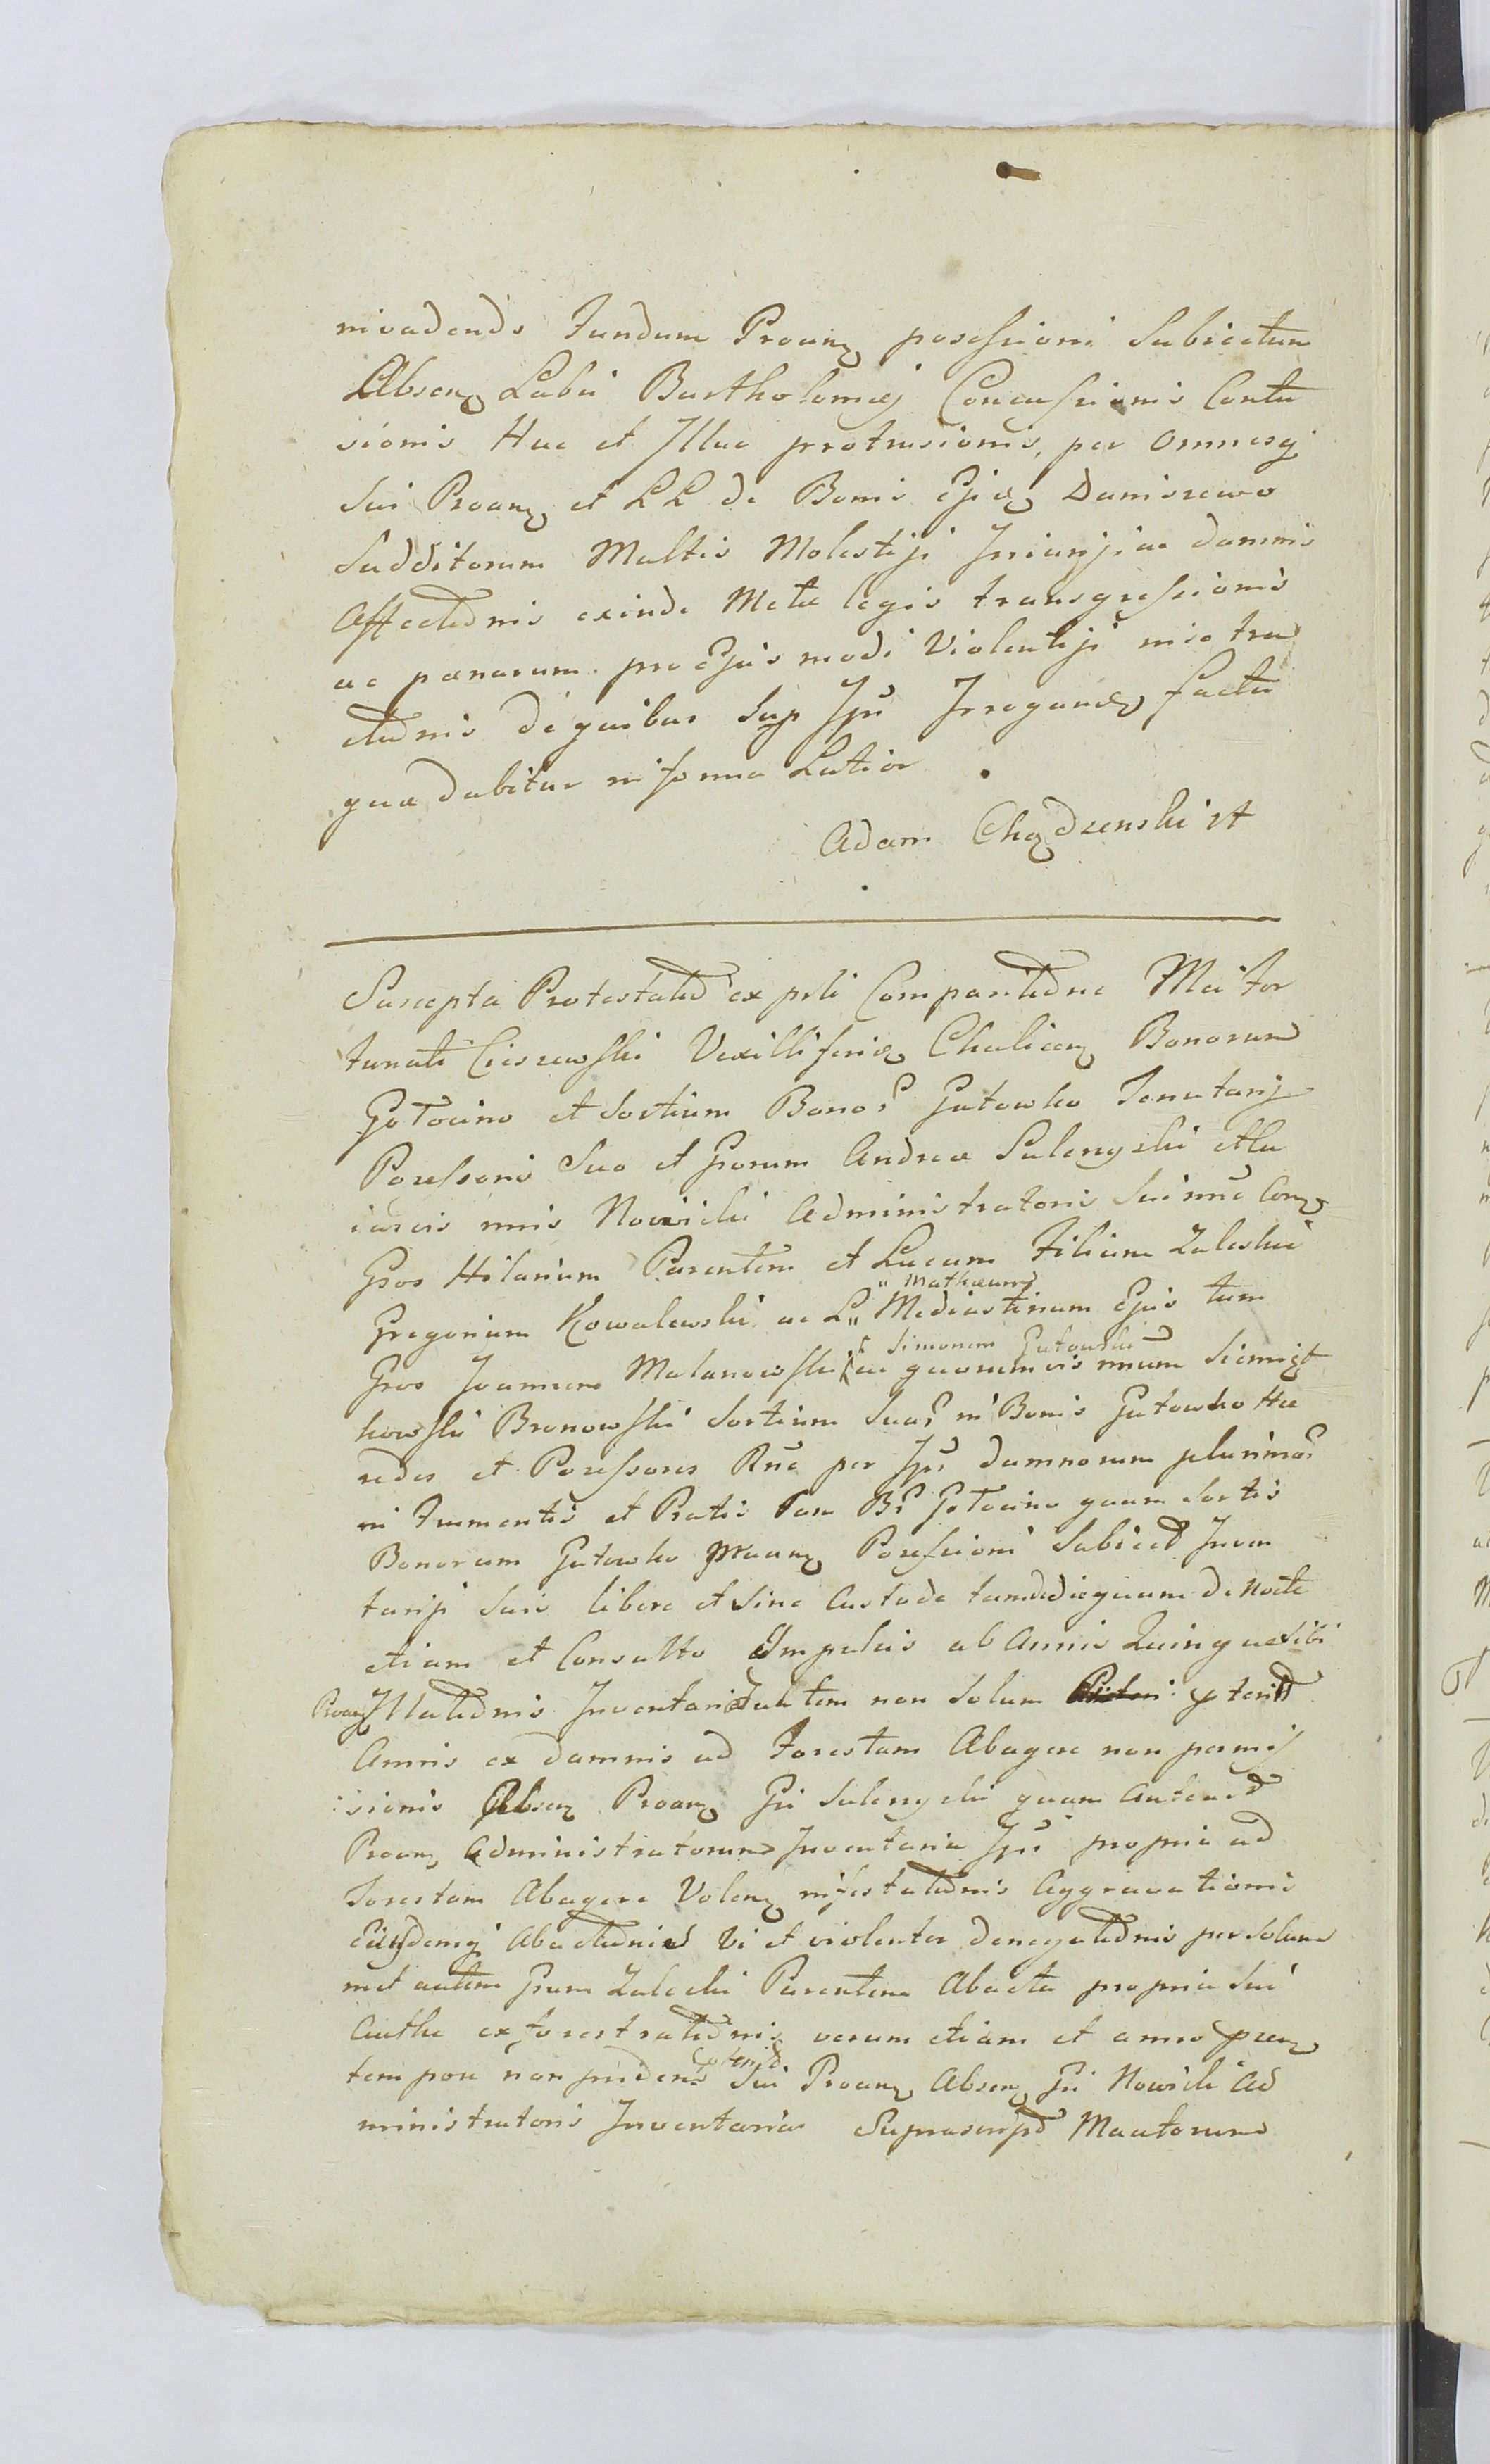 invadendo Fundum Proanz possessioni Subiectum
Absenz Labii Bartholomaej Concussionis Contu
sionis Huc et Illuc protrusionis, per omnesq
Sui Proanz et LL de Bonis Ejusd Daniszewo
Subditorum Multis Molestiji Iniurijs ac damnis
Affectionis exinde Metu legis transgressionis
ac poenarum pro Ejus modi Violentiji
de quibus Sup Jpsi Irrogand facta
qua dabitur in forma Latior
Adam Chądzenski
Suscepta Protestatio ex psli Comparitione Mci For
tunati Cieszewski Vexilliferid Chelicen Bonorum
Gołocino et Sortium Bonor Gutowko Tenutarij
Possessoris Suo et Grorum Andreae Sulenyski
Nowicki Administratoris Sui nne Con
Gros Hilarium Parentem et Lucam Filium Zaleski
Gregorium Kowalewski ac L" "Mathaeum Mediastinum Ejus tum
Gros Joannem Malanowski Simonem Gutowski ac quorumvis unum Siemiąt
kowski Bronowski Sortium Suar in Bonis Gutowko Hae
redes et Possessores Rne per Jps damnorum plurimar
in Frumentis et Pratis tam Br Gołocino quam Sortis
Bonorum Gutowko Possessioni Subiect Inven
tarij Suis libere et sine Custode tam de die quam de Nocte
etiam et Consulto Impulsis ab Annis Quinque Sibi
Proanz Illationis Inventaria autem non Solum pterit
Annis ex damnis ad Forestam Abagere non permis
sionis Absenz Proanz Gsi Sulenyski quam
Proanz Administratorum Inventaria Jps propria ad
Forestam Abagere Volenz infestationis Aggravationis
Ejusdemq Abactionis Vi et violenter denegationis per Solum
met autem Grum Zaleski Parentem Abacta propria Sui
Authe ex forestrationis verum etiam et anno praez
tempore non pridem pterit Sui Proanz Absenz Gsi Nowicki Ad
ministratoris Inventaria Suprascript Mactorum